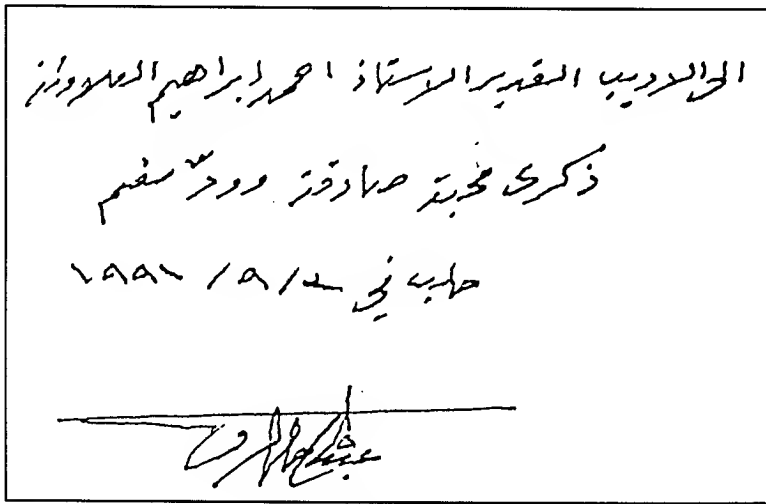 الى الاديب القدير الاستاذ احمد ابراهيم العلاونة
ذكرى محبة صادقة وودّ مقيم
حلب في ١٩٩١ / ٩ /